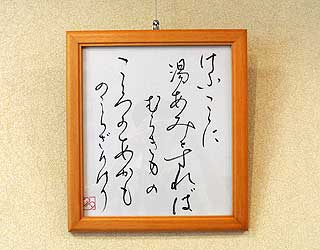 けふこゝに
湯あみをすれば
むらきもの
こゝろのあかも
のこらざりけり